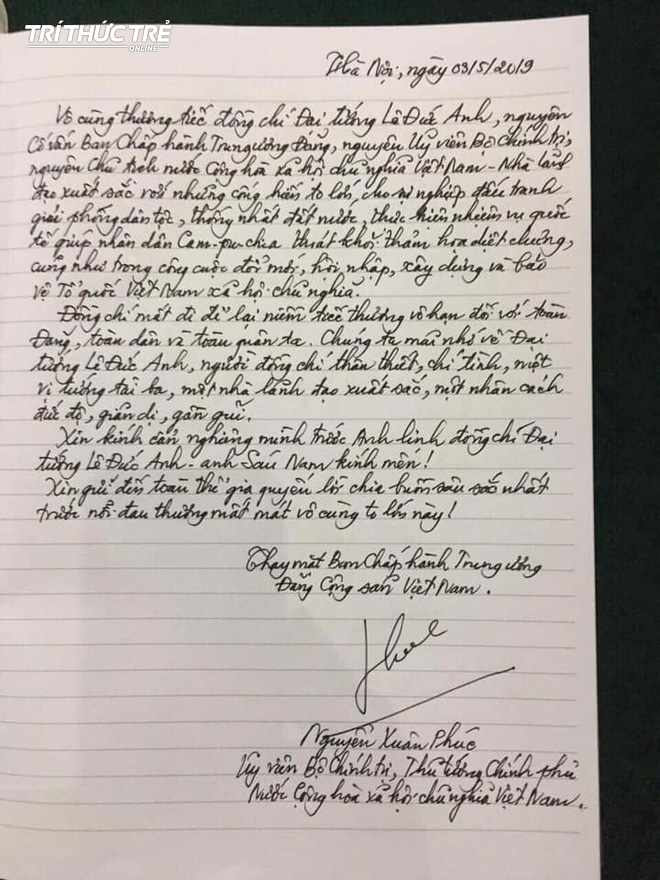 TRÍ THỨC TRẺ
ONLINE
Hà Nội, ngày 03/5/2019
Vô cùng thương tiếc đồng chí Đại tướng Lê Đức Anh, nguyên
Cố vấn Ban Chấp hành Trung ương Đảng, nguyên Uỷ viên Bộ Chính trị,
nguyên Chủ tịch nước Cộng hoà xã hội chủ nghĩa Việt Nam - Nhà lãnh
đạo xuất sắc với những cống hiến to lớn, cho sự nghiệp đấu tranh
giải phóng dân tộc, thống nhất đất nước, thực hiện nhiệm vụ quốc
tế giúp nhân dân Cam-pu-chia thoát khỏi thảm họa diệt chủng,
cũng như trong công cuộc đổi mới, hội nhập, xây dựng và bảo
vệ Tổ quốc Việt Nam xã hội chủ nghĩa.
Đồng chí mất đi để lại niềm tiếc thương vô hạn đối với toàn
Đảng, toàn dân và toàn quân ta. Chúng ta mãi nhớ về Đại
tướng Lê Đức Anh, người đồng chí thân thiết, chí tình, một
vị tướng tài ba, một nhà lãnh đạo xuất sắc, một nhân cách
đức độ, giản dị, gần gũi.
Xin kính cẩn nghiêng mình trước Anh linh đồng chí Đại
tướng Lê Đức Anh - anh Sáu Nam kính mến!
Xin gửi đến toàn thể gia quyến lời chia buồn sâu sắc nhất
trước nỗi đau thương mất mát vô cùng to lớn này!
Thay mặt Ban Chấp hành Trung ương
Đảng Cộng sản Việt Nam.
Nguyễn Xuân Phúc
Uỷ viên Bộ Chính trị, Thủ tướng Chính phủ
Nước Cộng hoà xã hội chủ nghĩa Việt Nam.